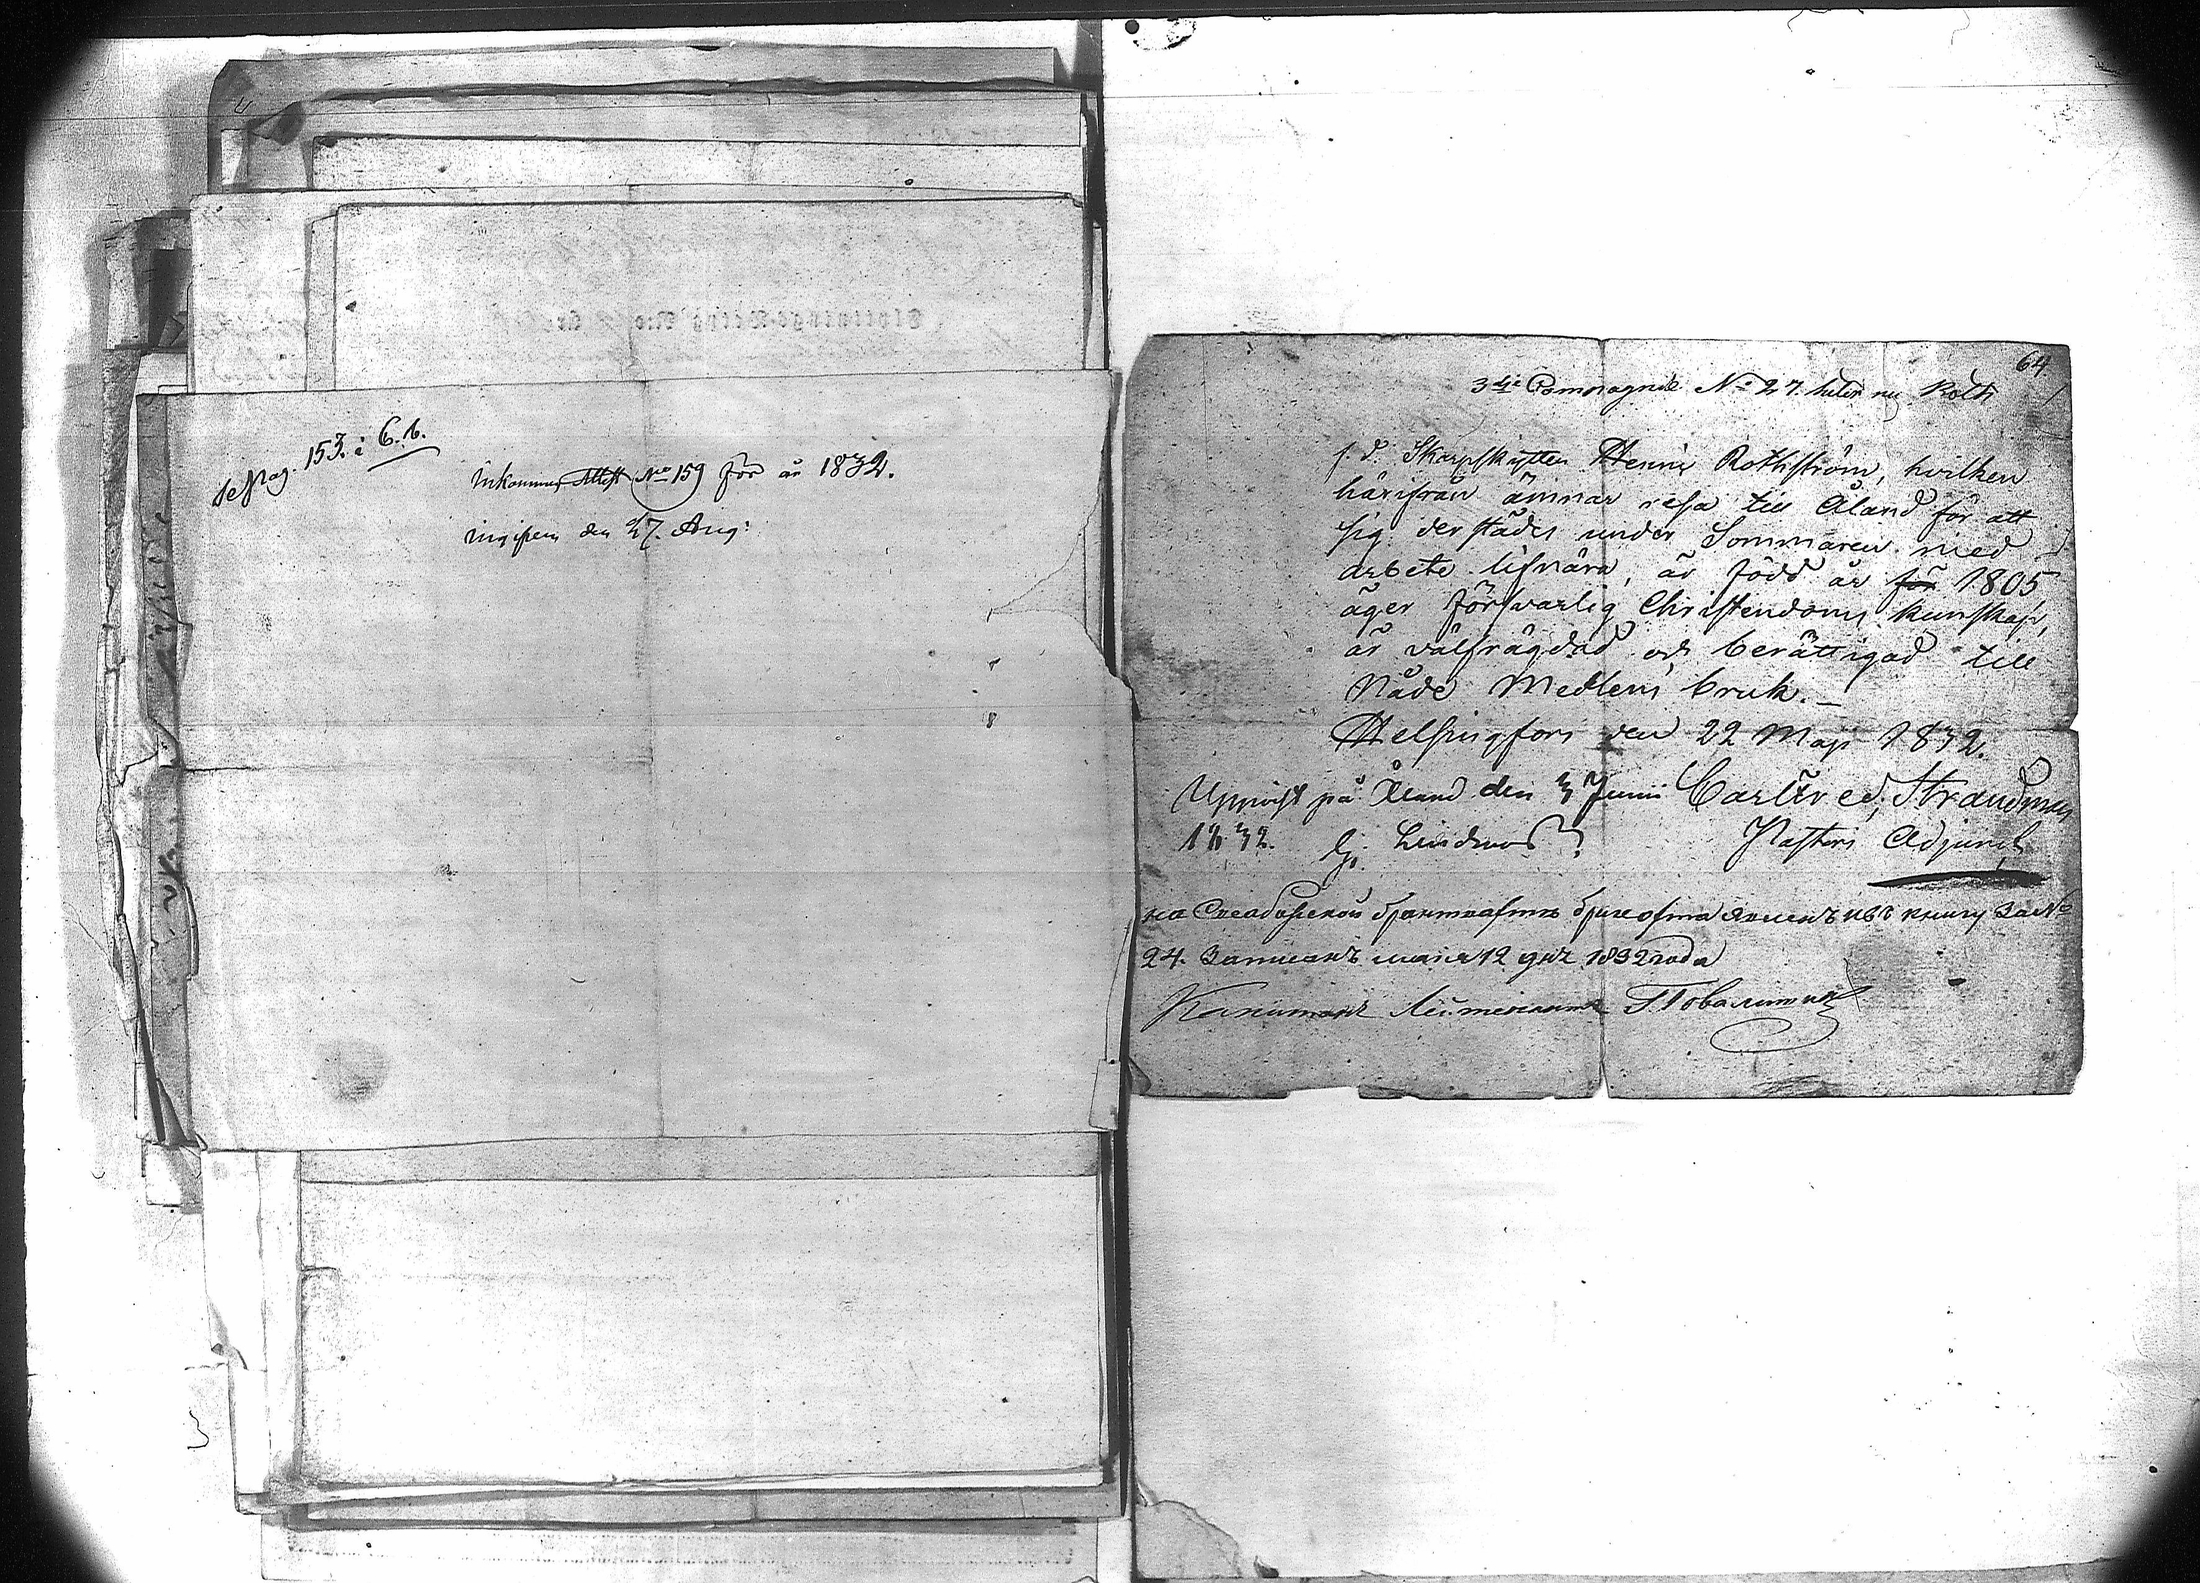 se pag. 153. i C. b.
Inkommna Attest No 159 för år 1832.
den 27. Aug:
64
3dje Compagnie No 27. heter nu Roth
f. d. Skarpskytten Henric Rothström, hvilken
härifrån ämnar resa till Åland för att
sig derstädes under Sommaren med
arbete lifnära, är född år för 1805
äger försvarlig Christendoms kunskap,
är välfrägdad och berättigad till
Nåde Medlens bruk.
Helsingfors den 22 Maji 1832.
Uppvist på Åland den 3 Junii
1832.
Strandman
Pastors Adjunct
на Свеаборгской брантвахте явленъ и въ книгу за No
24. записанъ маія 12 дня 1832 года
Капитанъ Лейтенантъ